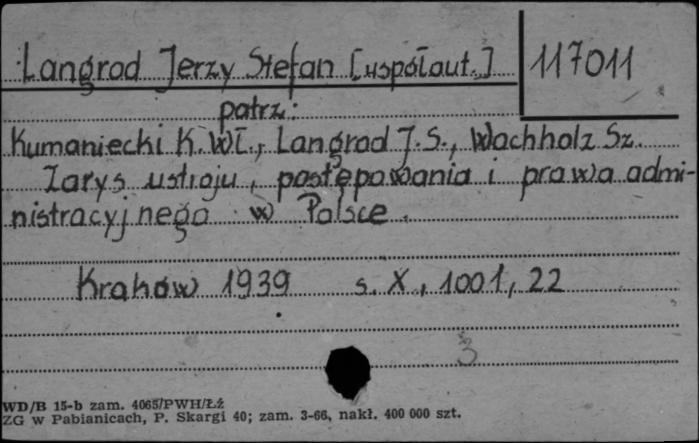 Langrod Jerzy Stefan [współaut.]
117011
patrz:
Kumaniecki K. Wł., Langrod J. S., Wachholz Sz.
Zarys ustroju, postępowania i prawa admi-
nistracyjnego w Polsce.
Kraków 1939 s. X, 1001, 22
3
WD/B 15-b zam. 4065/PWH/Łź
ZG w Pabianicach, P. Skargi 40; zam. 3-66, nakł. 400 000 szt.